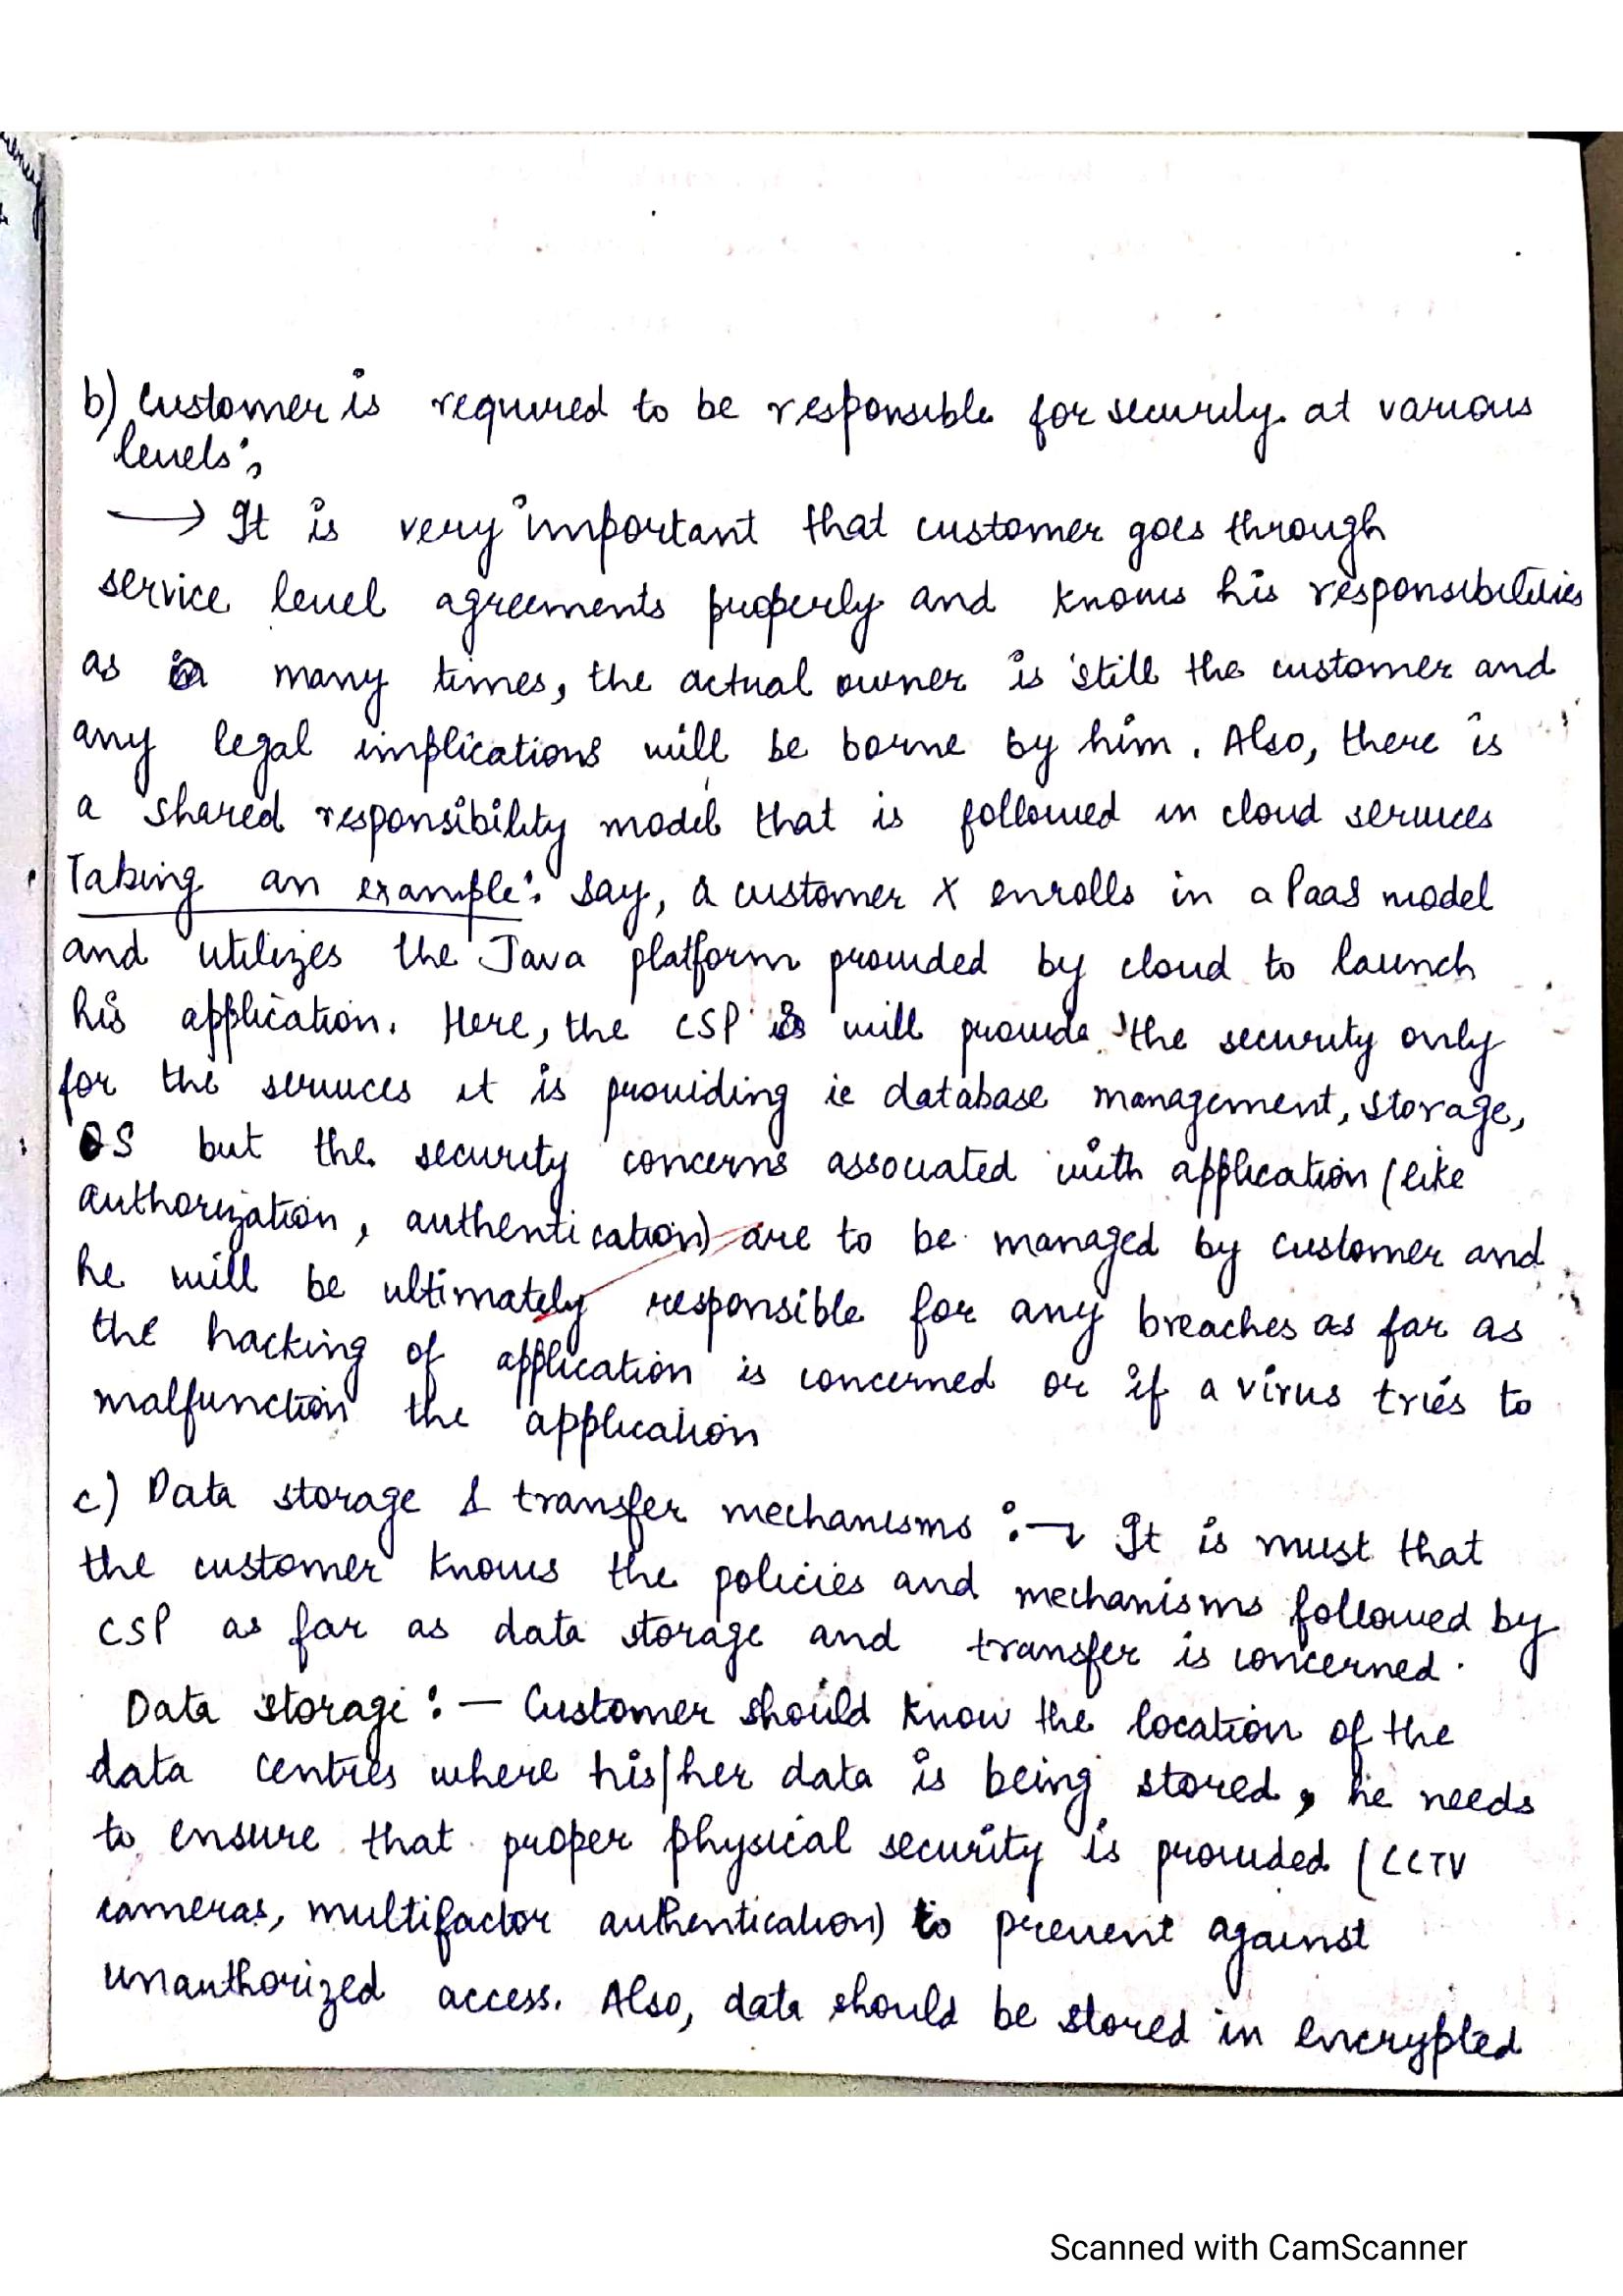 b) Customer is required to be responsible for security at various
levels:
→ It is very important that customer goes through
service level agreements properly and knows his responsibilities
as many times, the actual owner is still the customer and
any legal implications will be borne by him. Also, there is
a shared responsibility model that is followed in cloud services
Taking an example: Say, a customer X enrolls in a PaaS model
and utilizes the Java platform provided by cloud to launch
his application. Here, the CSP will provide the security only
for the services it is providing ie database management, storage,
OS but the security concerns associated with application (like
authorization, authentication) are to be managed by customer and
he will be ultimately responsible for any breaches as far as
the hacking of application is concerned or if a virus tries to
malfunction the application
c) Data storage & transfer mechanisms :→ It is must that
the customer knows the policies and mechanisms followed by
CSP as far as data storage and transfer is concerned.
Data storage :- Customer should know the location of the
data centres where his/her data is being stored, he needs
to ensure that proper physical security is provided (CCTV
cameras, multifactor authentication) to prevent against
unauthorized access. Also, data should be stored in encrypted
Scanned with CamScanner